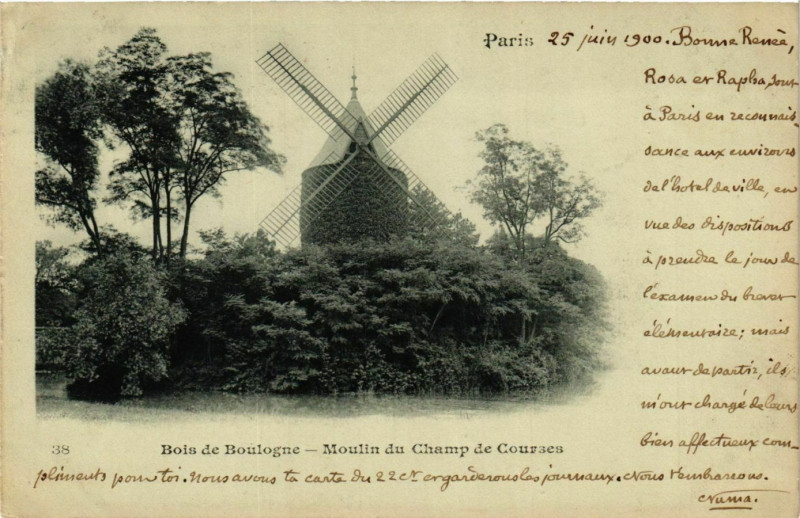 Paris 25 juin 1900. Bonne Renée,
Rosa et Rapha, sont
à Paris en reconnais-
sance aux environs
de l'hôtel de ville, en
vue des dispositions
à prendre le jour de
l'examen du brevet
élémentaire; mais
avant de partir, ils
m'ont chargé de leurs
bien affectueux com-
pliments pour toi. Nous avons ta carte du 22 ct et garderous les journaux. Nous t'embrassons.
Numa.
38 Bois de Boulogne — Moulin du Champ de Courses